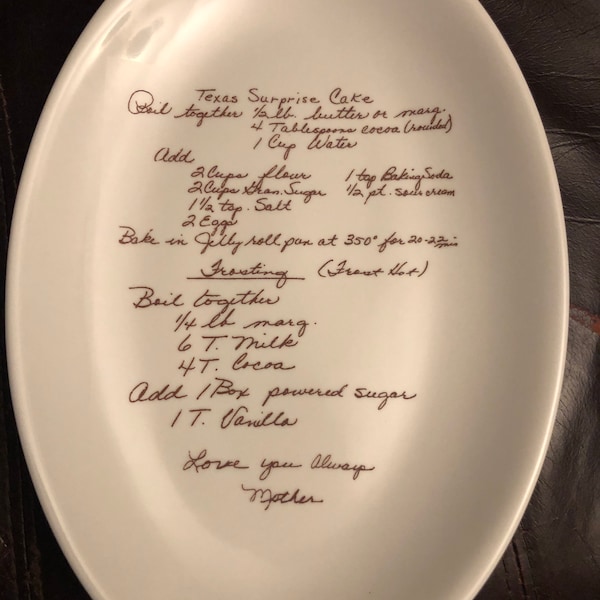 Texas Surprise Cake
Boil together 1/2 lb. butter or marg.
4 Tablespoons cocoa (rounded)
1 Cup Water
Add
2 Cups flour 1 tsp Baking Soda
2 Cups Gran. Sugar 1/2 pt. sour cream
1 1/2 tsp. Salt
2 Eggs
Bake in Jelly roll pan at 350° for 20-22 min
Frosting (Frost Hot)
Boil together
1/4 lb marg.
6 T. Milk
4 T. Cocoa
Add 1 Box powered sugar
1 T. Vanilla
Love you Always
Mother